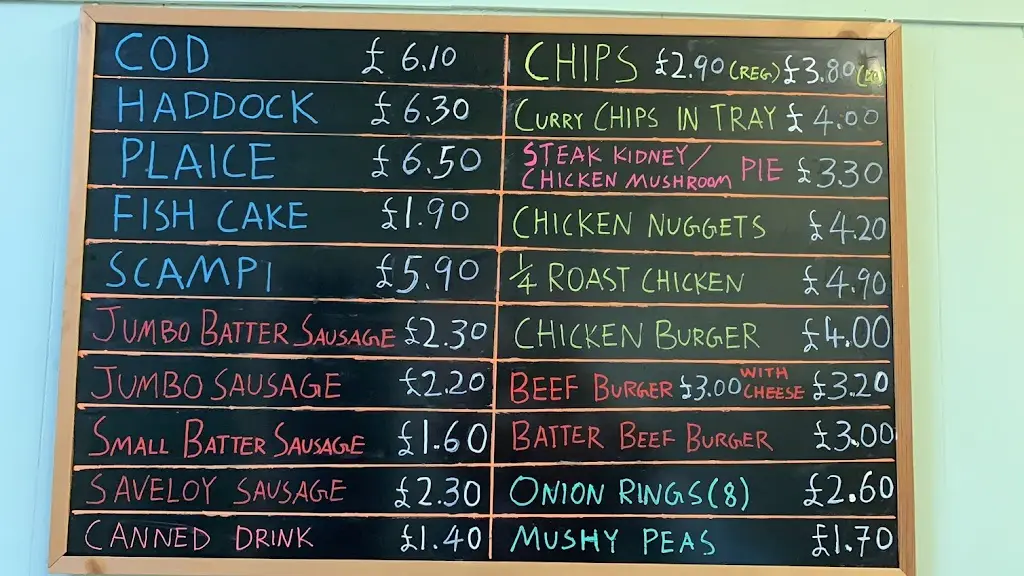 COD £6.10
HADDOCK £6.30
PLAICE £6.50
FISH CAKE £1.90
SCAMPI £5.90
JUMBO BATTER SAUSAGE £2.30
JUMBO SAUSAGE £2.20
SMALL BATTER SAUSAGE £1.60
SAVELOY SAUSAGE £2.30
CANNED DRINK £1.40
CHIPS £2.90 (REG.) £3.80
CURRY CHIPS IN TRAY £4.00
STEAK KIDNEY/
CHICKEN MUSHROOM PIE £3.30
CHICKEN NUGGETS £4.20
1/4 ROAST CHICKEN £4.90
CHICKEN BURGER £4.00
BEEF BURGER £3.00 WITH CHEESE £3.20
BATTER BEEF BURGER £3.00
ONION RINGS (8) £2.60
MUSHY PEAS £1.70